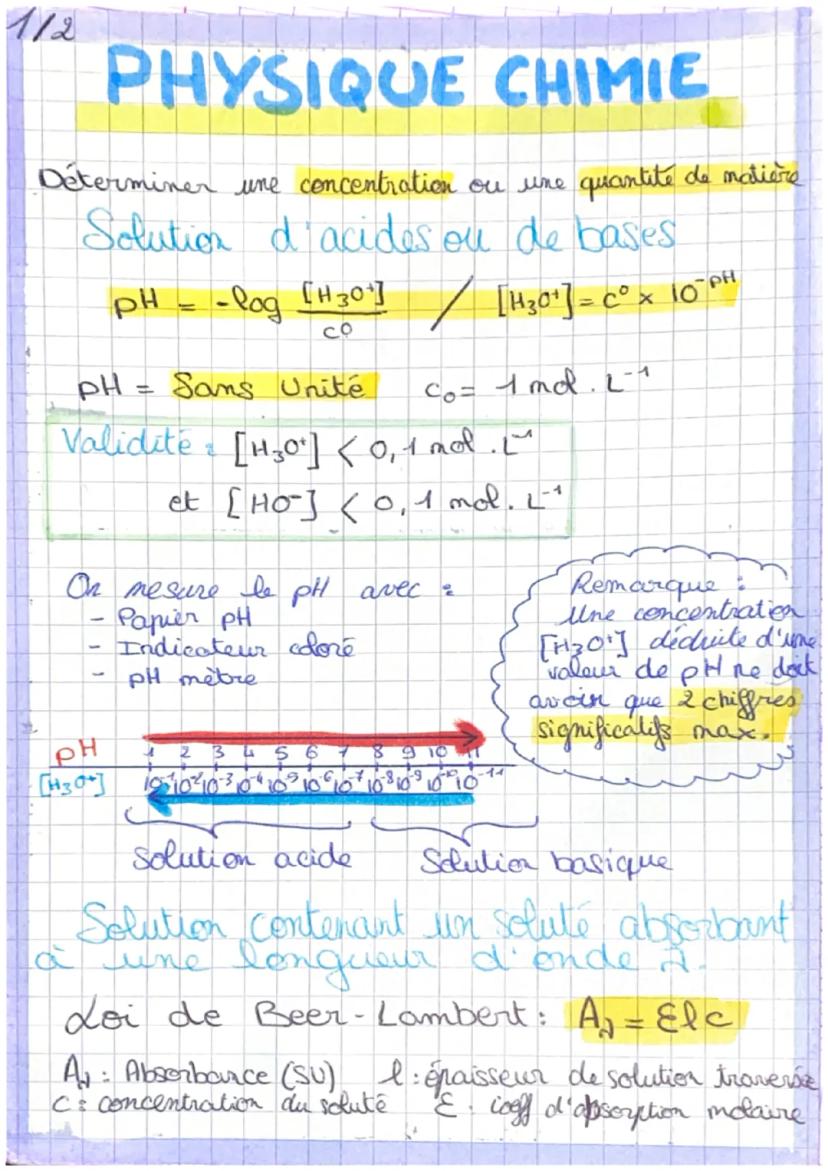 1/2
PHYSIQUE CHIMIE
Déterminer une concentration ou une quantité de matière
Solution d'acides ou de bases
pH = -log [H3O+]/c° / [H3O+] = c° × 10^-pH
pH = Sans Unité c0 = 1 mol.L-1
Validité : [H3O+] < 0,1 mol.L-1
et [HO-] < 0,1 mol.L-1
On mesure le pH avec :
- Papier pH
- Indicateur coloré
- pH mètre
Remarque :
Une concentration
[H3O+] déduite d'une
valeur de pH ne doit
avoir que 2 chiffres
significatifs max.
pH 1 2 3 4 5 6 7 8 9 10 11
[H3O+] 10-1 10-2 10-3 10-4 10-5 10-6 10-7 10-8 10-9 10-10 10-11
Solution acide Solution basique
Solution contenant un soluté absorbant
à une longueur d'onde λ.
Loi de Beer-Lambert : Aλ = Ɛlc
Aλ : Absorbance (SU) l : épaisseur de solution traversée
C : concentration du soluté Ɛ : coeff d'absorption molaire